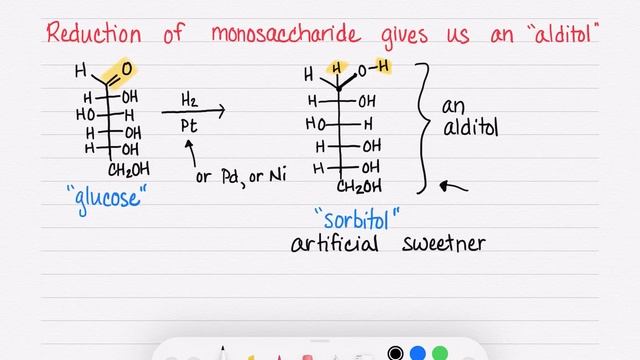 Reduction of monosaccharide gives us an "alditol"
H O
H OH
HO H
H OH
H OH
CH2OH
"glucose"
H2
Pt
or Pd, or Ni
H H O-H
H OH
HO H
H OH
H OH
CH2OH
"sorbitol"
artificial sweetner
an
alditol